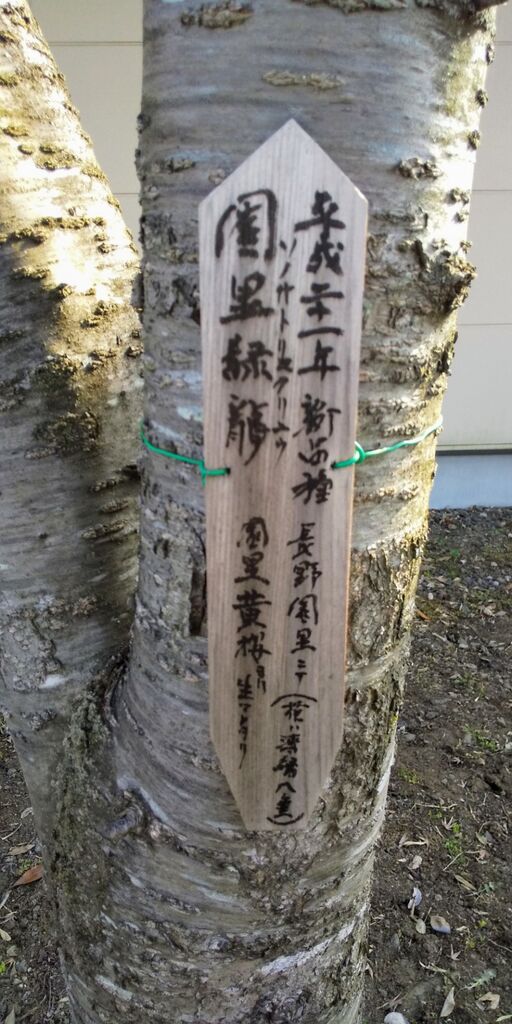 平成二十一年 新品種 長野園里ニテ(花ハ深緑八重)
ソノサトリョクリュウ
園里緑龍 園里黄桜ヨリ生マレタリ